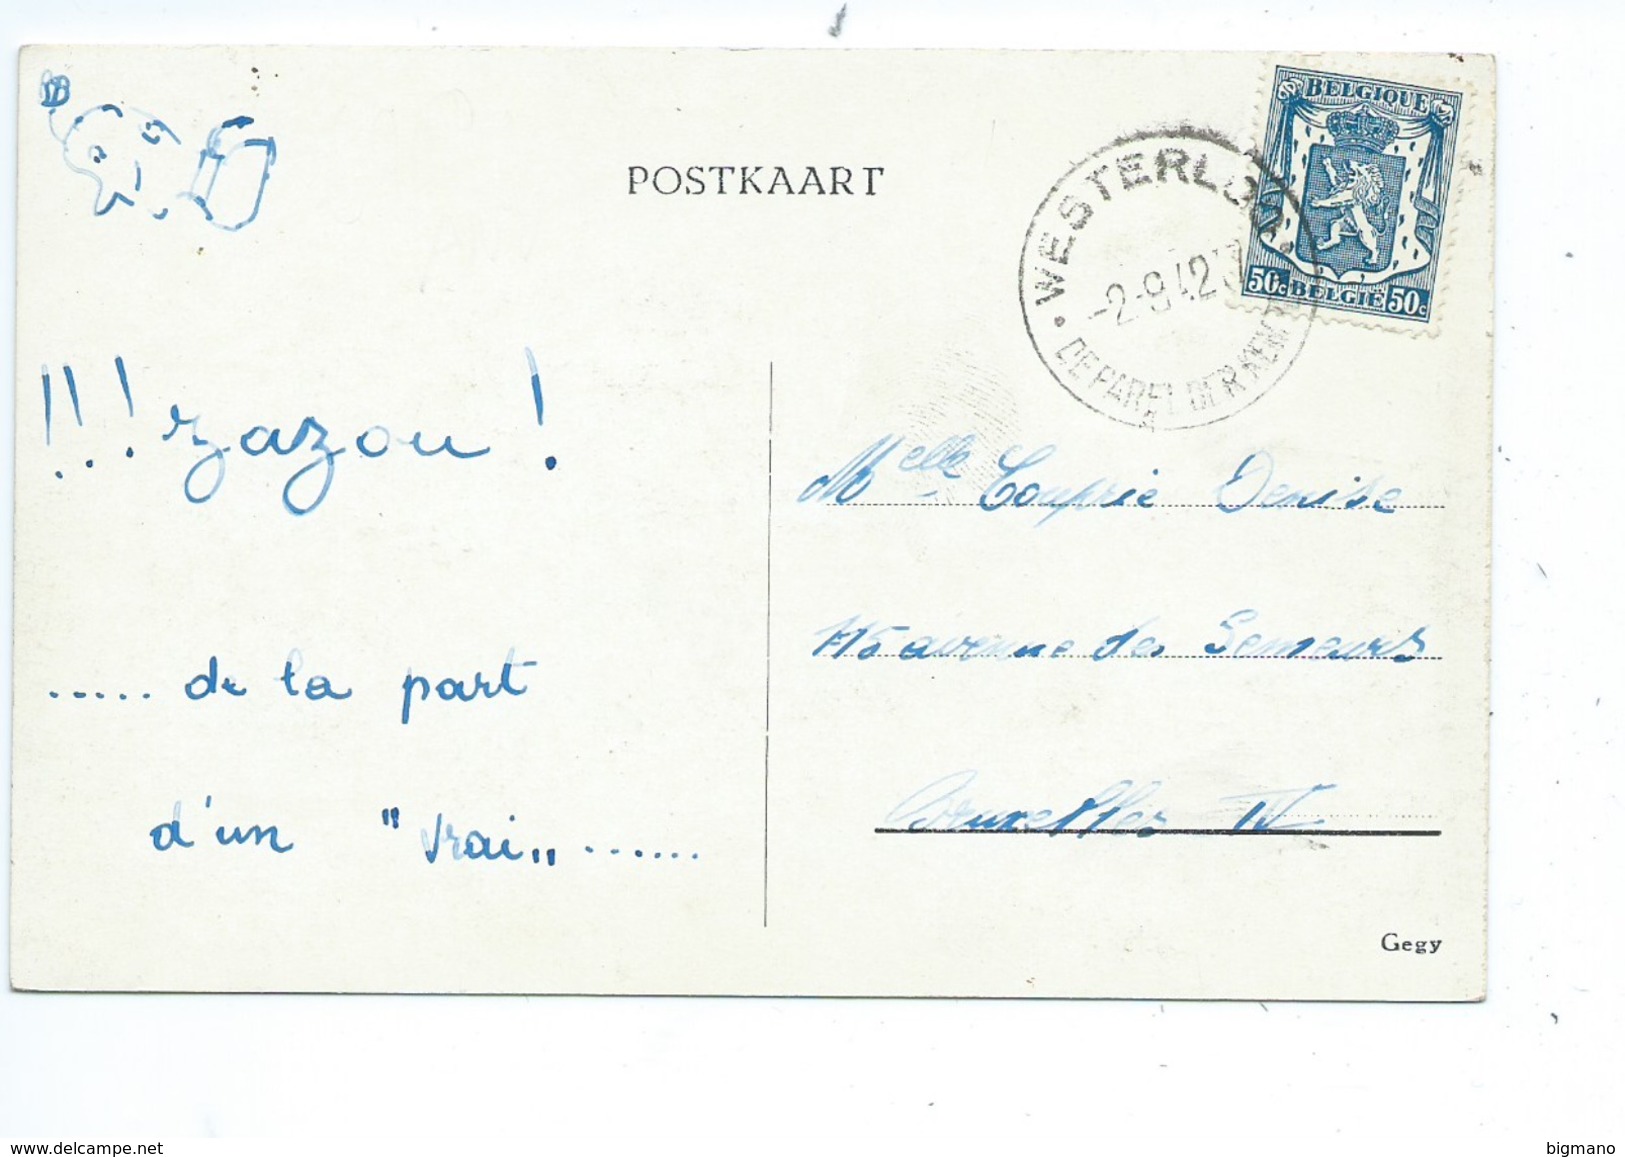 POSTKAART
BELGIQUE
50c BELGIË 50c
WESTERLOO
-2-9.42
DE PAREL DER KEM
!!! zazou !
..... de la part
d'un "vrai" .......
Melle Couprie Denise
115 avenue des Semeurs
Bruxelles IV
Gegy
www.delcampe.net
bigmano